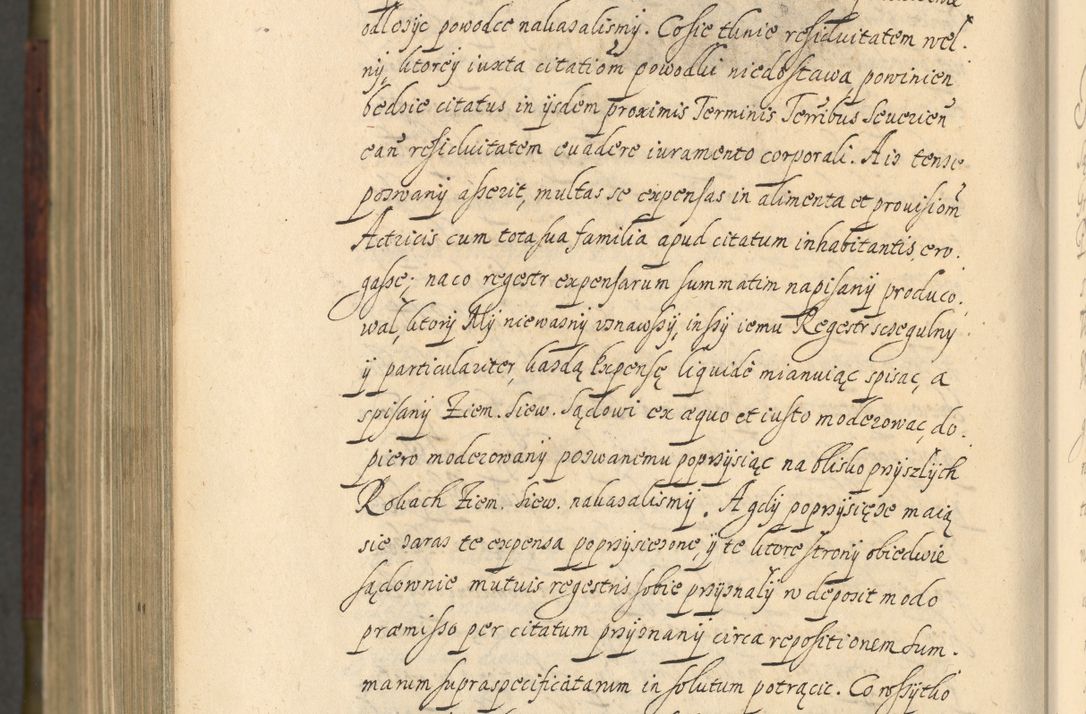 odłozyc powodce nakazalismy. Cosie tknie residuitatem weł.
ny, ktorey iuxta citatiom̃ powodki niedostawa, powinien
bedzie citatus in ijsdem proximis Terminis Terribus Severien
ean residuitatem evadere iuramento corporali. A iz tenze
pozwany asserit, multas se expensas in alimenta et provisiom̃
Actricis cum tota sua familia apud citatum inhabitantis ero.
gasse; na co regestr expensarum summatim napisany produco.
wał, ktory My niewazny uznawszy, inszy iemu Regestr sczegulny
y particulariter, kazdą Expensę liquide mianuiąc spisac, a
spisany Ziem. Siew. Sądowi ex æquo et iusto moderowac, do.
piero moderowany pozwanemu poprzysiąc na blisko przyszłych
Rokach Ziem. Siew. nakazalismy. A gdy poprzysięze maią
sie zaraz te expensa poprzysiezone, y te ktore strony obiedwie
sądownie mutuis regestris sobie przyznały w deposit modo
præmisso per citatum przyznany circa repositionem Sum.
marum supraspecificatarum in solutum potrącic. Co wszytko